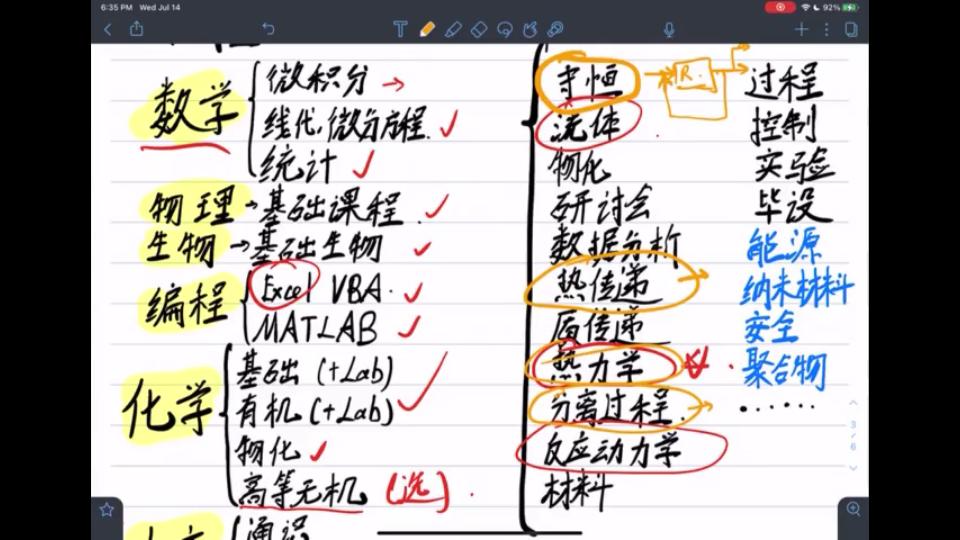 6:35 PM Wed Jul 14
92%
数学
微积分
线代,微分方程
统计
物理→基础课程
生物→基础生物
编程
Excel VBA
MATLAB
化学
基础 (+Lab)
有机 (+Lab)
物化
高等无机 (选)
通识
守恒
流体
物化
研讨会
数据分析
热传递
质传递
热力学
分离过程
反应动力学
材料
R.
过程
控制
实验
毕设
能源
纳米材料
安全
聚合物
......
3/6